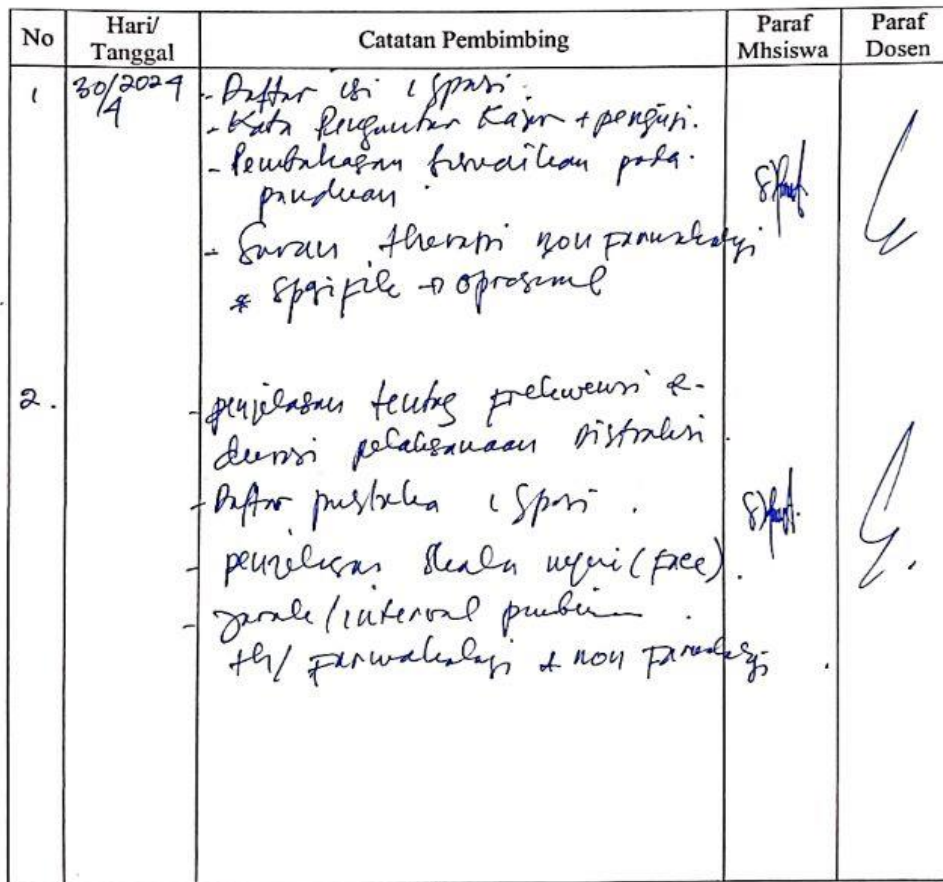 No Hari/ Tanggal Catatan Pembimbing Paraf Mhsiswa Paraf Dosen
1 30/2024 - Daftar isi 1 spasi.
4
- Kata Pengantar Kajur + penguji.
- Pembahasan pada
panduan.
- Saran therapi non farmakologi
* Spesifik →
2. - penjelasan tentang frekwensi &
durasi pelaksanaan distraksi.
- Daftar pustaka 1 spasi.
- penjelasan skala nyeri (face).
- jarak/interval
th/ farmakologi + non farmakologi.